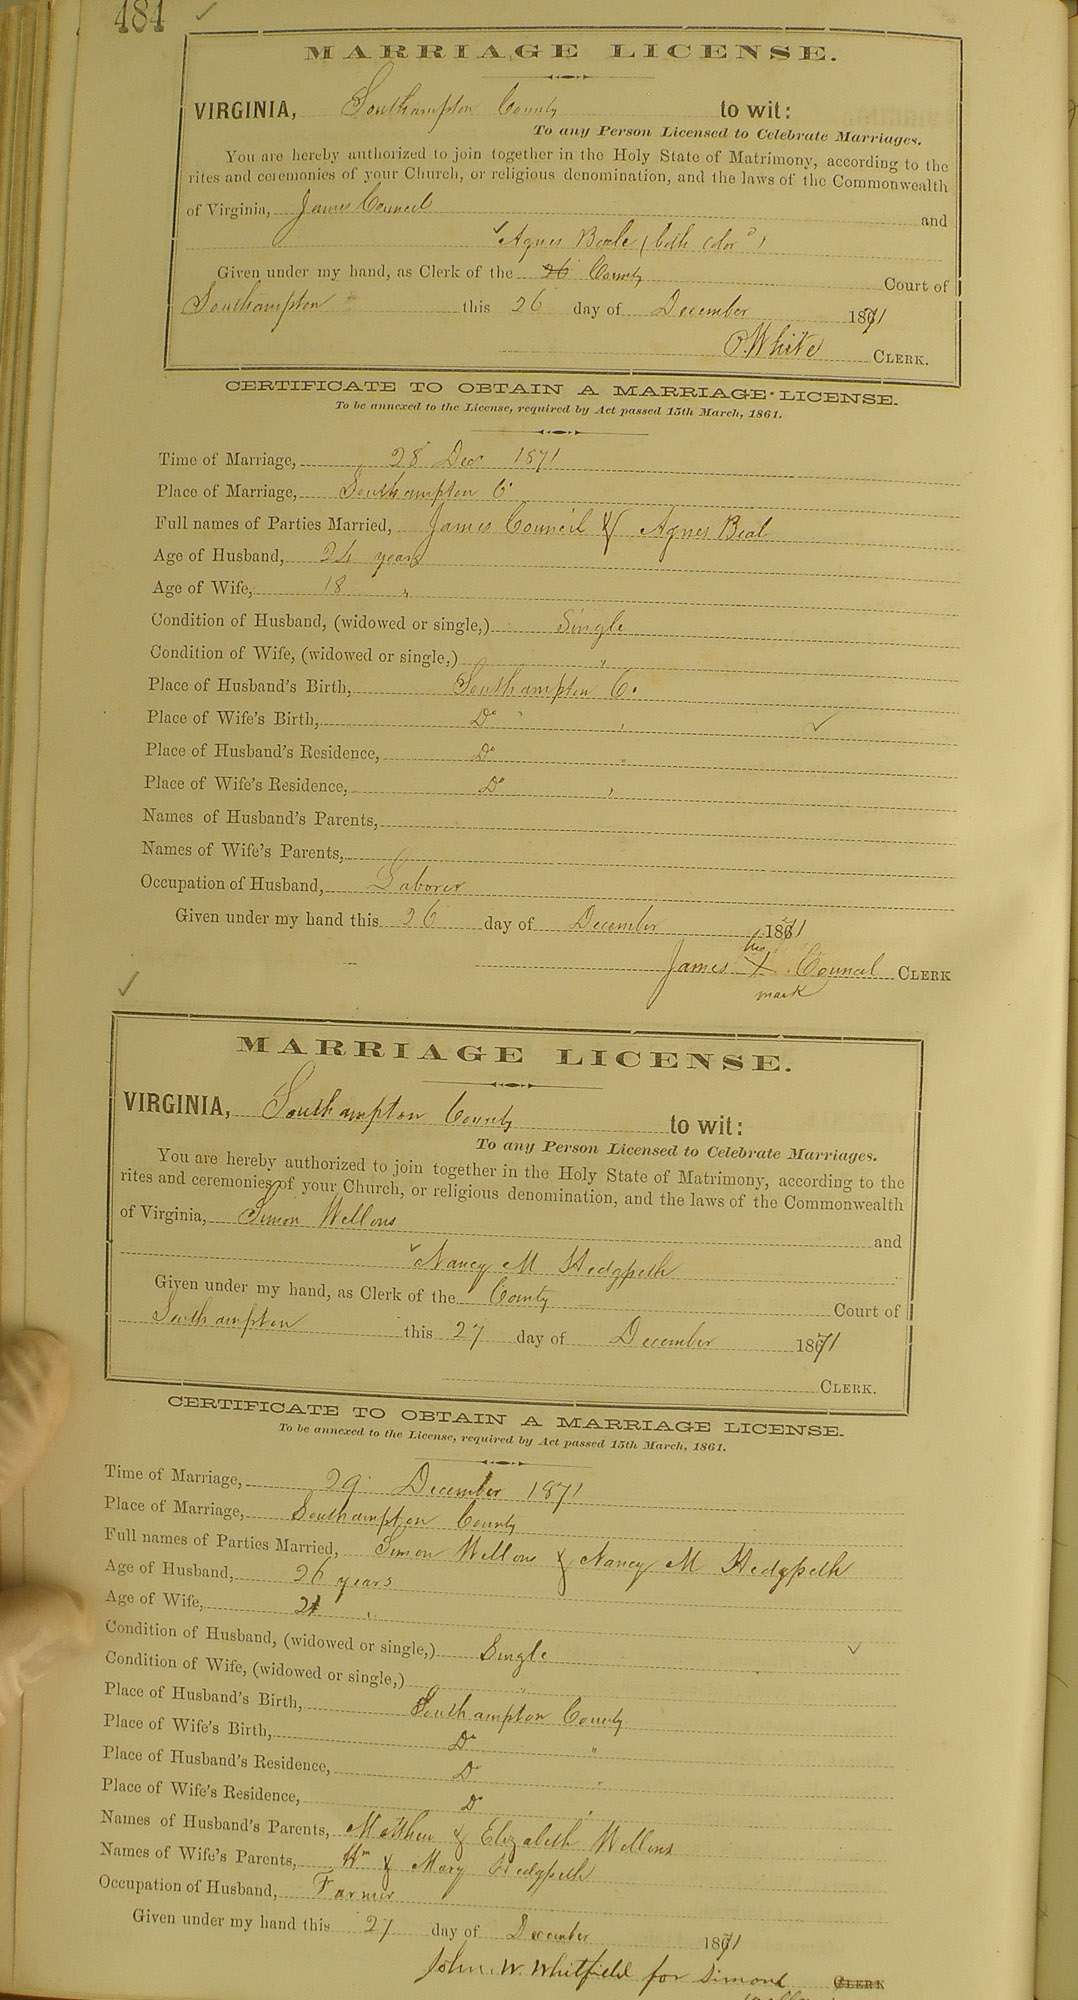 484
MARRIAGE LICENSE.
VIRGINIA, Southampton County to wit:
To any Person Licensed to Celebrate Marriages.
You are hereby authorized to join together in the Holy State of Matrimony, according to the
rites and ceremonies of your Church, or religious denomination, and the laws of the Commonwealth
of Virginia, James Council and
Agnes Beale (both cold)
Given under my hand, as Clerk of the County Court of
Southampton this 26 day of December 1871
White CLERK.
CERTIFICATE TO OBTAIN A MARRIAGE LICENSE.
To be annexed to the License, required by Act passed 15th March, 1861.
Time of Marriage, 28 Dec 1871
Place of Marriage, Southampton C
Full names of Parties Married, James Council & Agnes Beal
Age of Husband, 24 years
Age of Wife, 18 "
Condition of Husband, (widowed or single,) Single
Condition of Wife, (widowed or single,) "
Place of Husband's Birth, Southampton C.
Place of Wife's Birth, Do "
Place of Husband's Residence, Do "
Place of Wife's Residence, Do "
Names of Husband's Parents,
Names of Wife's Parents,
Occupation of Husband, Laborer
Given under my hand this 26 day of December 1871
his
James X Council CLERK
mark
MARRIAGE LICENSE.
VIRGINIA, Southampton County to wit:
To any Person Licensed to Celebrate Marriages.
You are hereby authorized to join together in the Holy State of Matrimony, according to the
rites and ceremonies of your Church, or religious denomination, and the laws of the Commonwealth
of Virginia, Simon Wellons and
Nancy M Hedgpeth
Given under my hand, as Clerk of the County Court of
Southampton this 27 day of December 1871
CLERK.
CERTIFICATE TO OBTAIN A MARRIAGE LICENSE.
To be annexed to the License, required by Act passed 15th March, 1861.
Time of Marriage, 29 December 1871
Place of Marriage, Southampton County
Full names of Parties Married, Simon Wellons & Nancy M Hedgpeth
Age of Husband, 26 years
Age of Wife, 21 "
Condition of Husband, (widowed or single,) Single
Condition of Wife, (widowed or single,) "
Place of Husband's Birth, Southampton County
Place of Wife's Birth, Do "
Place of Husband's Residence, Do "
Place of Wife's Residence, Do "
Names of Husband's Parents, Matthew & Elizabeth Wellons
Names of Wife's Parents, Wm & Mary Hedgpeth
Occupation of Husband, Farmer
Given under my hand this 27 day of December 1871
John. W. Whitfield for Simond CLERK